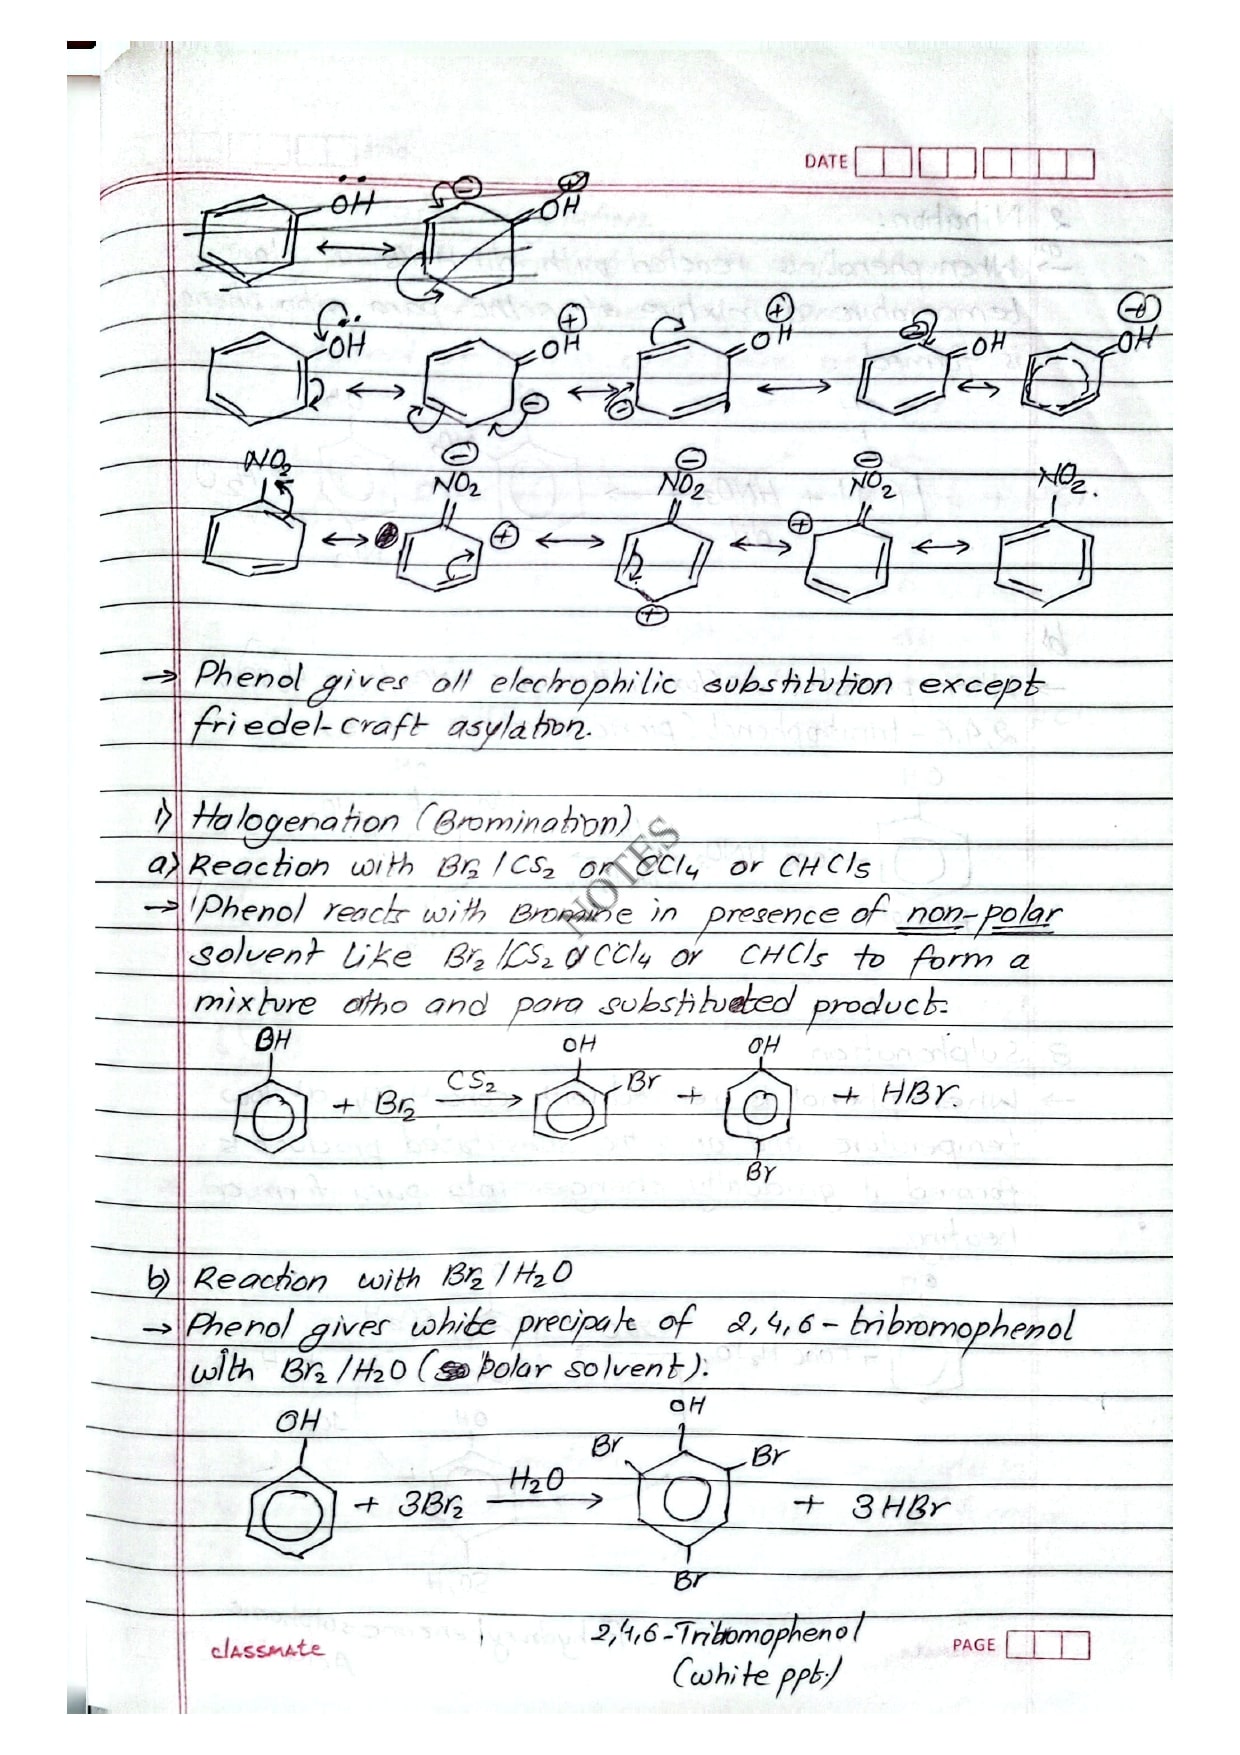 DATE
OH ⊖ ⊕ OH
OH ⊕ OH ⊕ OH ⊖ OH ⊕ OH
⊖ ⊖
NO2 ⊖ NO2 ⊖ NO2 ⊖ NO2 NO2.
⊕ ⊕
⊕
→ Phenol gives all electrophilic substitution except
friedel-craft asylation.
1) Halogenation (Bromination)
a) Reaction with Br2 / CS2 or CCl4 or CHCls
NOTES
→ Phenol reacts with Bromine in presence of non-polar
solvent like Br2 / CS2 or CCl4 or CHCls to form a
mixture otho and para substituted product.
OH OH OH
+ Br2 CS2 → Br + + HBr.
Br
b) Reaction with Br2 / H2O
→ Phenol gives white precipate of 2,4,6-tribromophenol
with Br2 / H2O ( polar solvent).
OH OH
Br Br
+ 3Br2 H2O → + 3HBr
Br
2,4,6-Tribomophenol
(white ppt.)
classmate PAGE